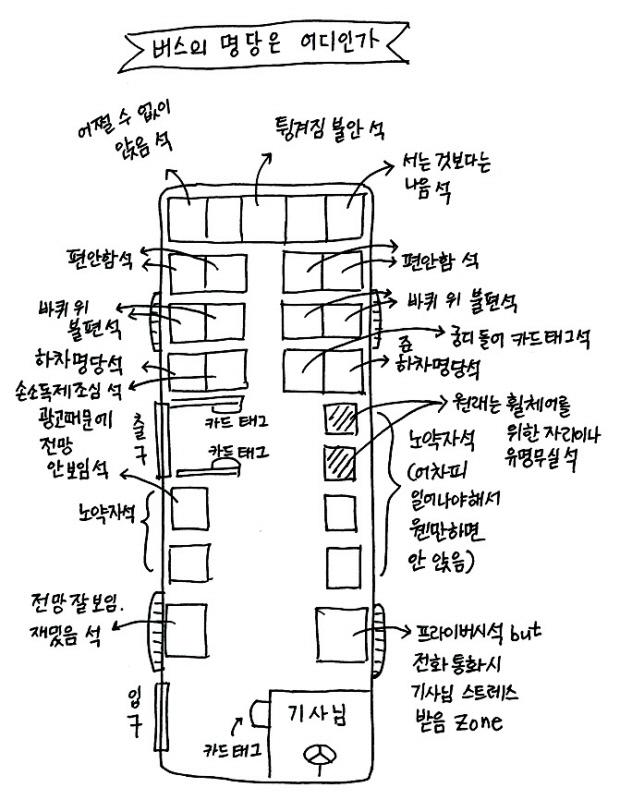 버스의 명당은 어디인가
어쩔 수 없이
앉음 석
튕겨짐 불안 석
서는 것보다는
나음 석
편안함석
편안함 석
바퀴 위
불편석
바퀴 위 불편석
하차명당석
손소독제조심석
궁디 들어 카드태그석
좀
하차명당석
광고때문에
전망
안보임석
출
구
카드태그
카드태그
원래는 휠체어를
위한 자리이나
유명무실 석
노약자석
(어차피
일어나야해서
웬만하면
안 앉음)
노약자석
전망 잘 보임.
재밌음 석
프라이버시석 but
전화 통화시
기사님 스트레스
받음 zone
입
구
카드태그
기사님